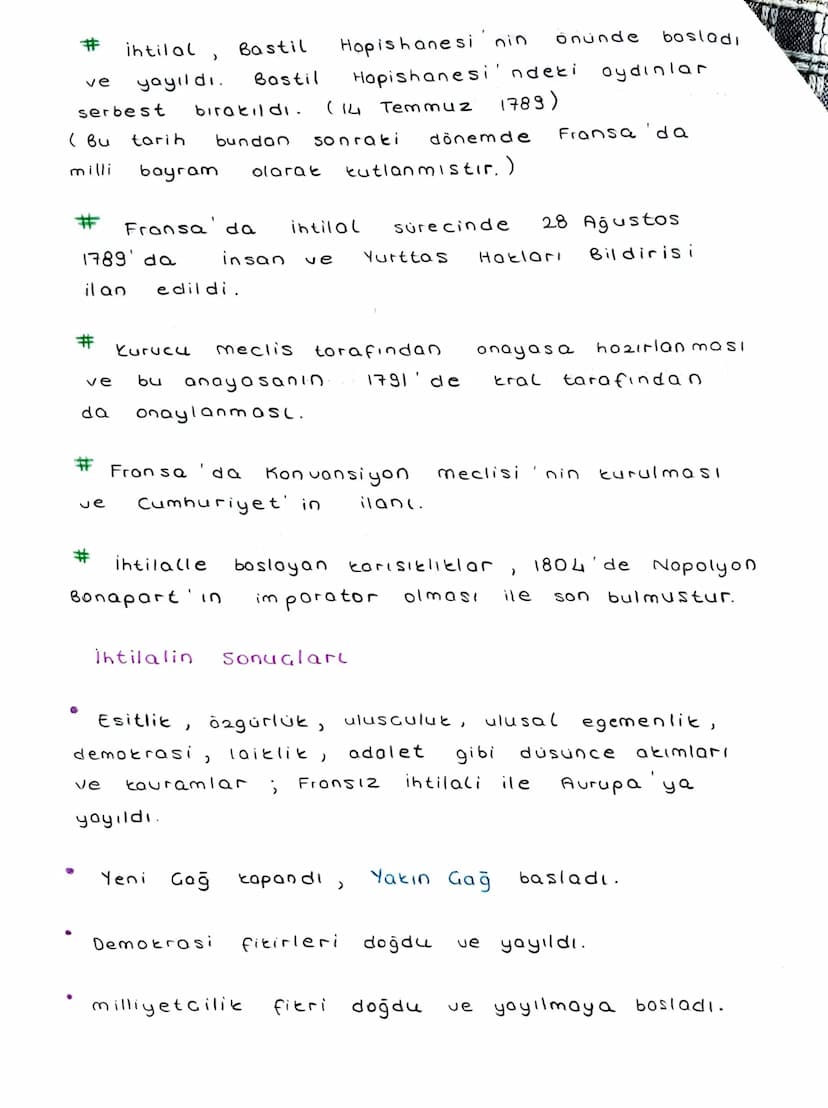 # ihtilal, Bastil Hapishanesi'nin önünde basladı
ve yayıldı. Bastil Hapishanesi'ndeki aydınlar
serbest bırakıldı. (14 Temmuz 1789)
(Bu tarih bundan sonraki dönemde Fransa'da
milli bayram olarak kutlanmıstır.)
# Fransa'da ihtilal sürecinde 28 Ağustos
1789'da insan ve Yurttas Hakları Bildirisi
ilan edildi.
# Kurucu meclis tarafından anayasa hazırlanması
ve bu anayasanın 1791'de kral tarafından
da onaylanması.
# Fransa'da Konvansiyon meclisi'nin kurulması
ve Cumhuriyet'in ilanı.
# ihtilalle baslayan karısıklıklar, 1804'de Napolyon
Bonapart'ın imparator olması ile son bulmustur.
İhtilalin Sonucları
• Esitlik, özgürlük, ulusculuk, ulusal egemenlik,
demokrasi, laiklik, adalet gibi düsünce akımları
ve kavramlar; Fransız ihtilali ile Avrupa'ya
yayıldı.
• Yeni Cağ kapandı, Yakın Cağ basladı.
• Demokrasi fikirleri doğdu ve yayıldı.
• milliyetcilik fikri doğdu ve yayılmaya basladı.